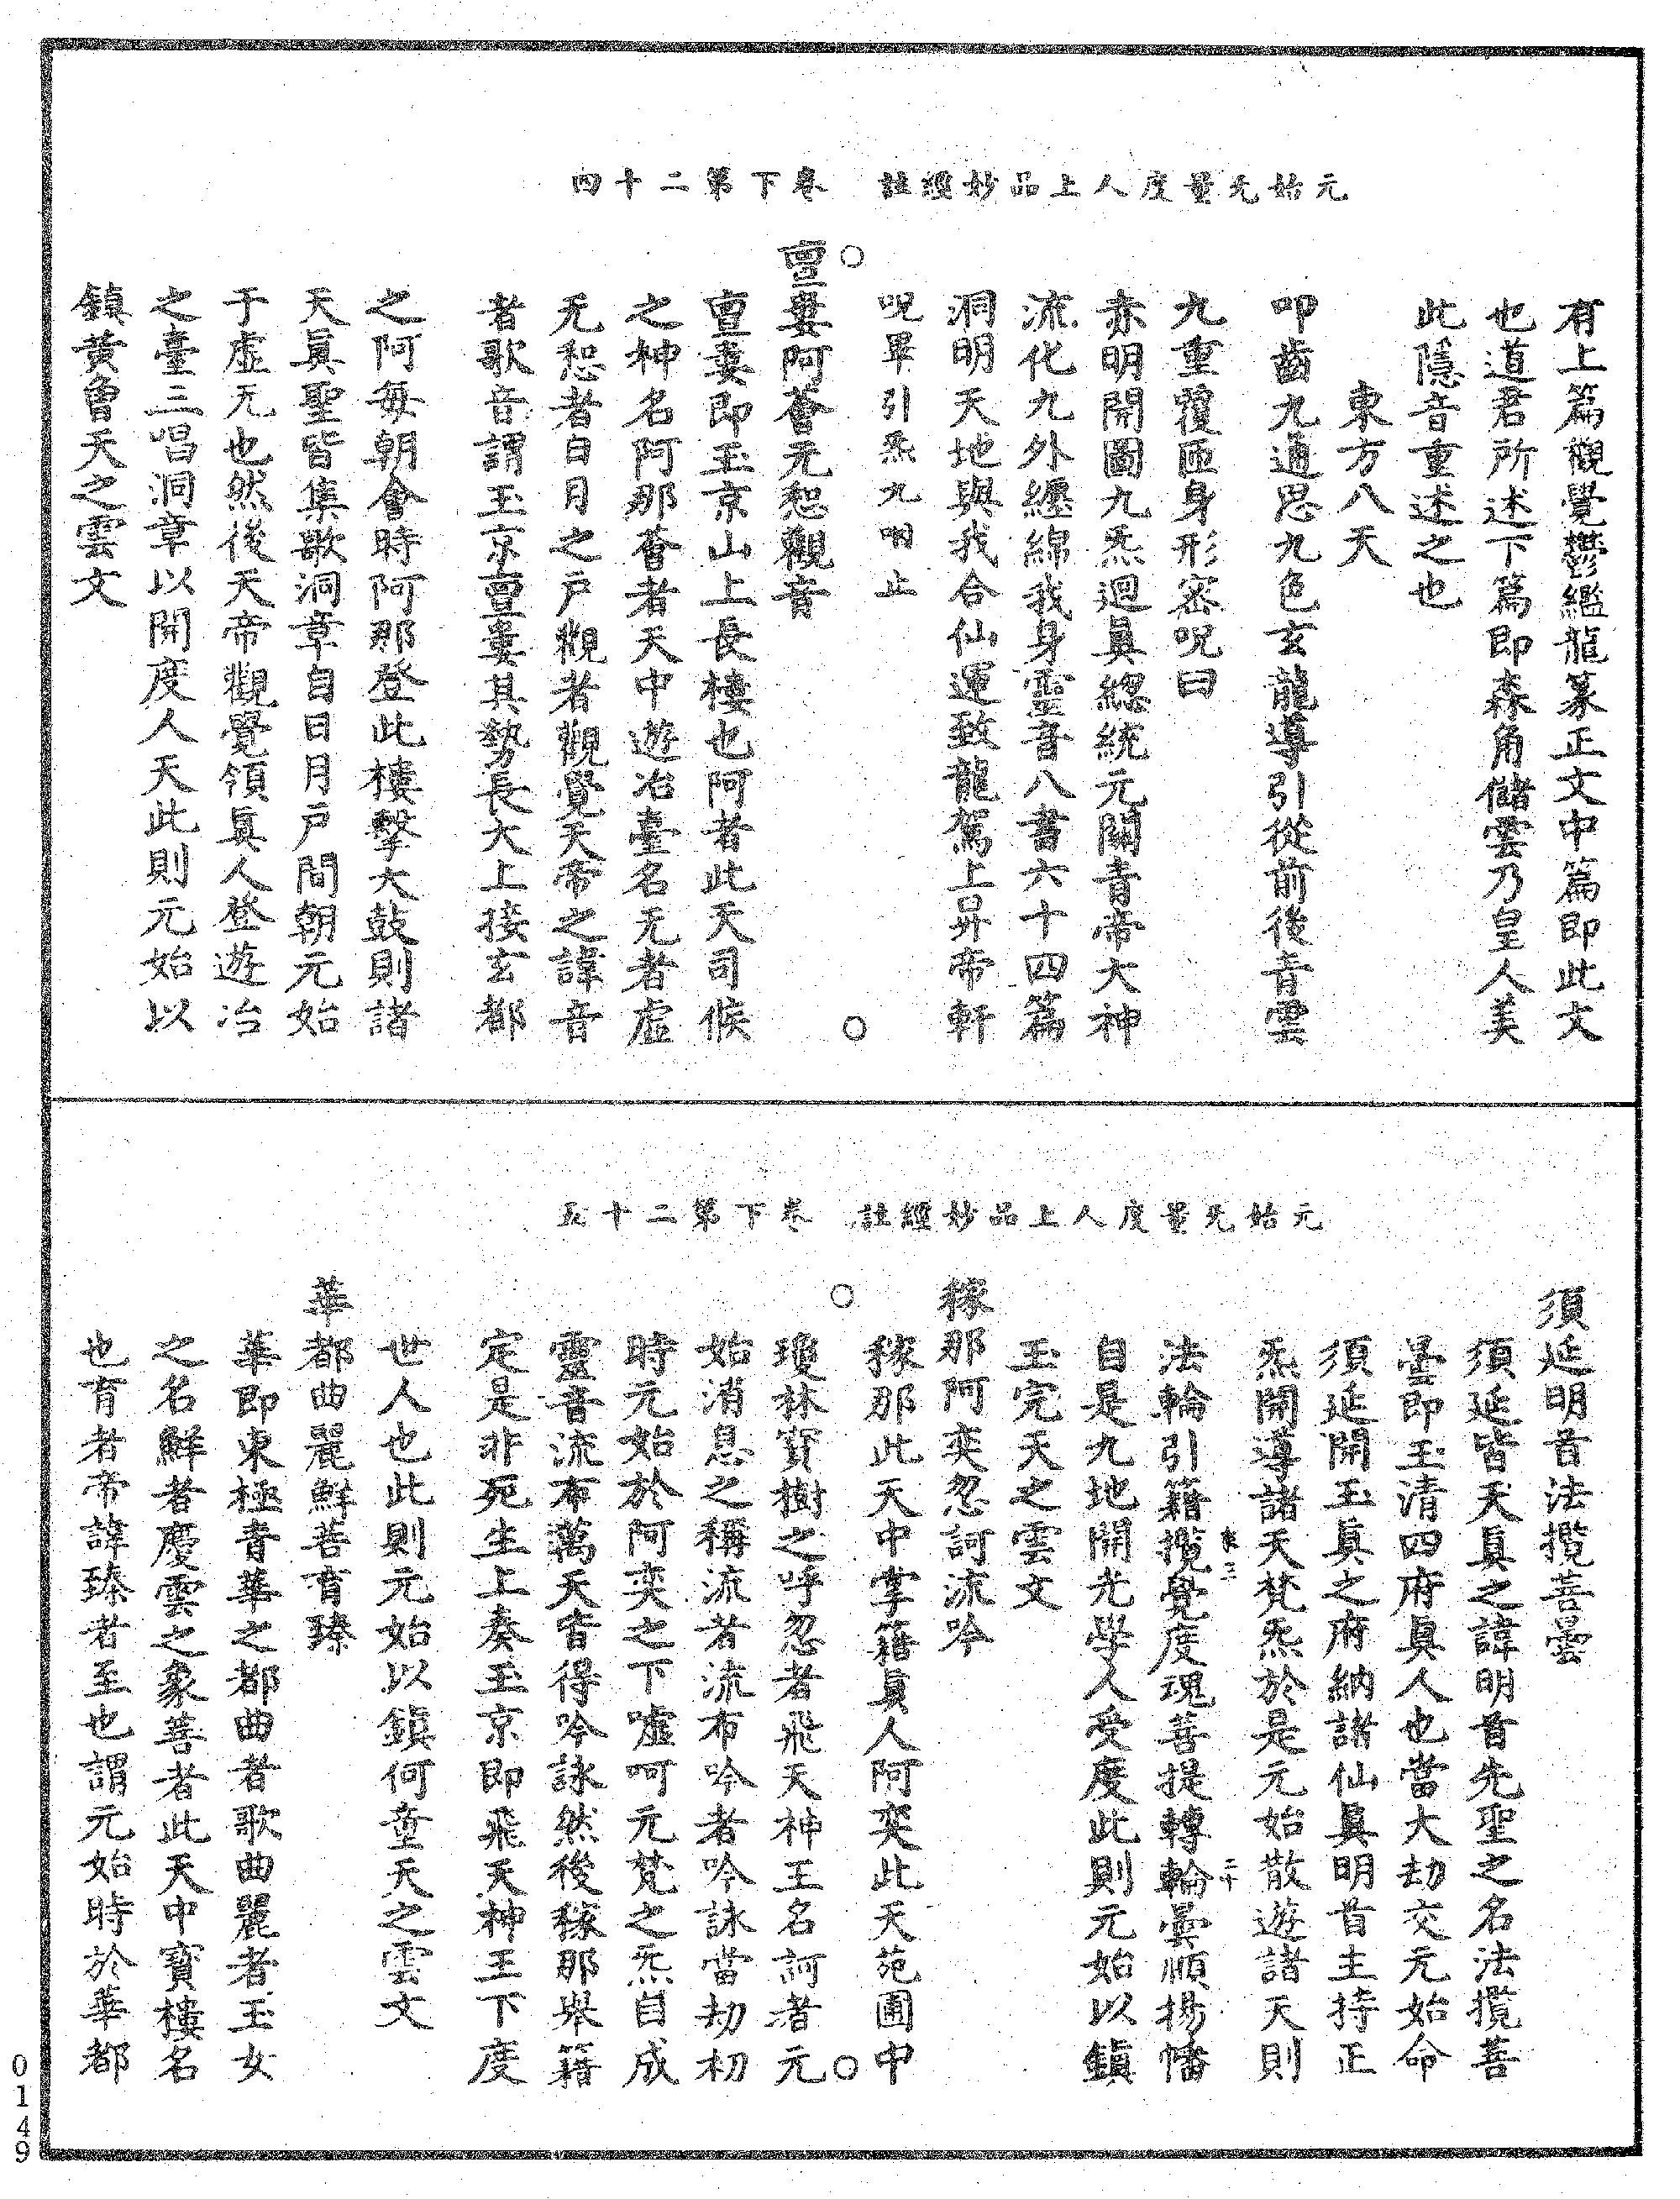 元始无量度人上品妙經註　卷下第二十四
有上篇觀覺鬱繿龍篆正文中篇即此文
也道君所述下篇即森角儲雲乃皇人美
此隱音重述之也
東方八天
叩齒九通思九色玄龍導引從前後青雲
九重覆匝身形密呪曰
赤明開圖九炁迴眞總統元關青帝大神
流化九外纏綿我身靈音八書六十四篇
洞明天地與我合仙運致龍駕上昇帝軒
呪畢引炁九咽止
亶婁阿薈无惒觀音
亶婁即玉京山上長樓也阿者此天司候
之神名阿那薈者天中遊冶臺名无者虛
无惒者日月之戶觀者觀覺天帝之諱音
者歌音謂玉京亶婁其勢長大上接玄都
之阿每朝會時阿那登此樓擊大鼓則諸
天眞聖皆集歌洞章自日月戶間朝元始
于虛无也然後天帝觀覺領眞人登遊冶
之臺三唱洞章以開度人天此則元始以
鎮黃曾天之雲文
元始无量度人上品妙經註　卷下第二十五
須延明首法攬菩曇
須延皆天眞之諱明首先聖之名法攬菩
曇即玉清四府眞人也當大劫交元始命
須延開玉眞之府納諸仙眞明首主持正
炁開導諸天梵炁於是元始散遊諸天則
法輪引籍攬覺度魂菩提轉輪曇順揚幡
自是九地開光學人受度此則元始以鎮
玉完天之雲文
稼那阿奕忽訶流吟
稼那此天中掌籍眞人阿奕此天苑圃中
瓊林寶樹之呼忽者飛天神王名訶者元
始消息之稱流者流布吟者吟詠當劫初
時元始於阿奕之下噓呵元梵之炁自成
靈音流布萬天皆得吟詠然後稼那舉籍
定是非死生上奏玉京即飛天神王下度
世人也此則元始以鎮何童天之雲文
華都曲麗鮮菩育臻
華即東極青華之都曲者歌曲麗者玉女
之名鮮者慶雲之象菩者此天中寶樓名
也育者帝諱臻者至也謂元始時於華都
0149